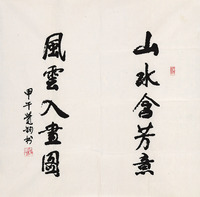 山水含芳意
風雲入畫圖
甲午